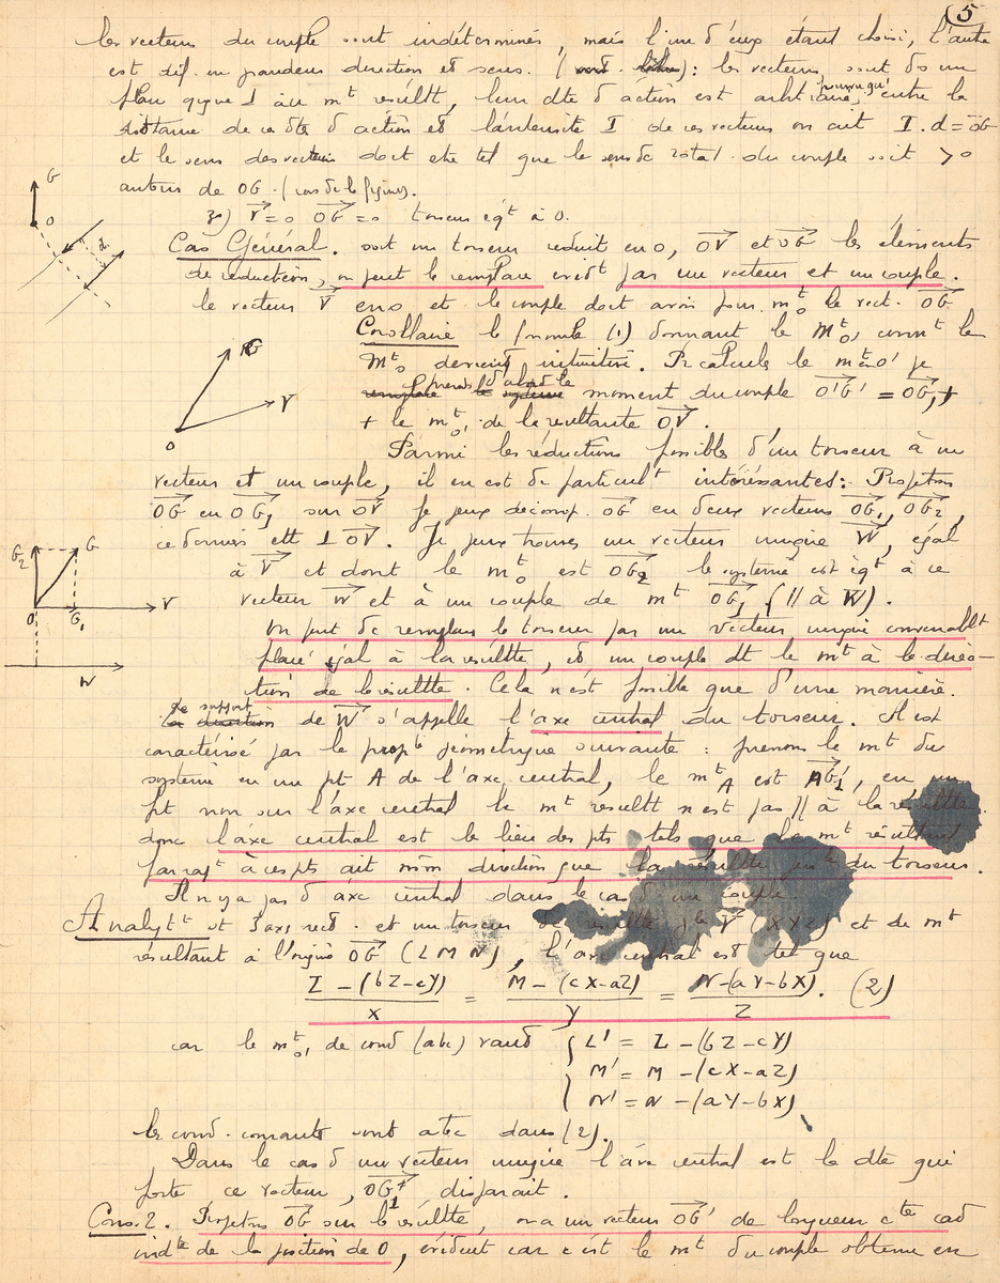 5
les vecteurs du couple sont indéterminés, mais l'un d'eux étant choisi, l'autre
est dét. en grandeur direction et sens. ( ): les vecteurs sont ds un
plan qcque ⊥ au mt résultt, leur dte d'action est arbitraire, pourvu qu'entre la
distance de ces dtes d'action et l'intensité I de ces vecteurs on ait I.d = OG
et le sens des vecteurs doit etre tel que le sens de rotat. du couple soit > 0
autour de OG. (cas de la figure).
3) V = 0 OG = 0 torseur éqt à 0.
Cas Général. soit un torseur reduit en O, OV et OG les éléments
de réduction, on peut le remplacer par un vecteur et un couple.
le vecteur V en O et le couple doit avoir pour mt o le vect. OG
Corollaire la formule (1) donnant le Mt o' connt le
Mt o devient intuitive. Pr calculer le mt en O' je
prends d'abord le moment du couple O'G' = OG, +
+ le mt o' de la resultante OV.
Parmi les réductions possibles d'un torseur à un
vecteur et un couple, il en est de particult intéréssantes: Projetons
OG en OG1 sur OV je peux décomp. OG en deux vecteurs OG1, OG2,
ce dernier ett ⊥ OV. Je peux trouver un vecteur unique W, égal
à V et dont le mt o est OG2 le système est éqt à ce
vecteur W et à un couple de mt OG1 (// à W).
on peut dc remplacer le torseur par un vecteur unique convenablt
placé égal à la résultte, et un couple dt le mt à la direc-
tion de la résultte. Cela n'est possible que d'une manière.
Le support de W s'appelle l'axe central du torseur. Il est
caractérisé par la propté géométrique suivante : prenons le mt du
système en un pt A de l'axe central, le mt A est AG'1, en un
pt non sur l'axe central le mt résultt n'est pas // à la résultte
donc l'axe central est le lieu des pts tels que le mt résultant
par rapt à ces pts ait même direction que la résultte du torseur.
Il n'y a pas d'axe central dans le cas d'un couple
Analytt st 3 axes rect. et un torseur de résultte V (XYZ) et de mt
résultant à l'origine OG (LMN), l'axe central est tel que
L-(bZ-cY)/X = M-(cX-aZ)/Y = N-(aY-bX)/Z. (2)
car le mt o' de coord (abc) vaut { L' = L-(bZ-cY)
M' = M-(cX-aZ)
N' = N-(aY-bX)
les coord. courants sont abc dans (2).
Dans le cas d'un vecteur unique l'axe central est la dte qui
porte ce vecteur, OG1 disparait.
Cons. 2. Projetons OG sur la résultte, on a un vecteur OG' de longueur cte cad
indte de la position de O, évident car c'est le mt du couple obtenu en
G
O
d
G
V
O
G2
G
V
O
G1
W